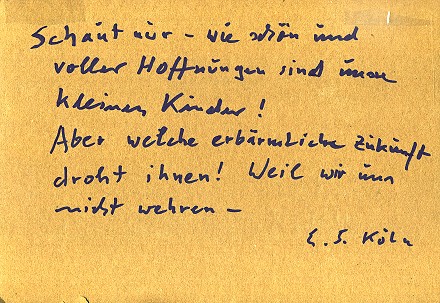 Schaut nur – wie schön und
voller Hoffnungen sind unsre
kleinen Kinder!
Aber welche erbärmliche Zukunft
droht ihnen! Weil wir uns
nicht wehren –
E. S. Köln